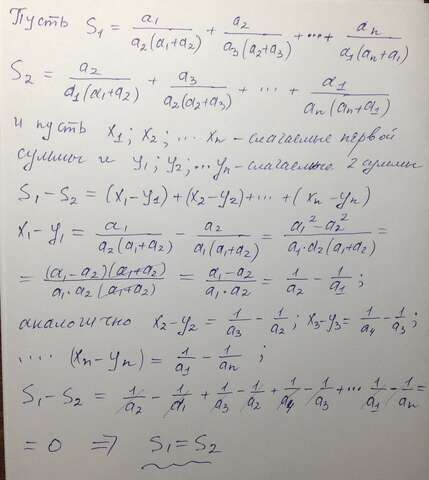 Пусть S₁ = a₁/(a₂(a₁+a₂)) + a₂/(a₃(a₂+a₃)) + ... + aₙ/(a₁(aₙ+a₁))
S₂ = a₂/(a₁(a₁+a₂)) + a₃/(a₂(a₂+a₃)) + ... + a₁/(aₙ(aₙ+a₁))
и пусть x₁; x₂; ... xₙ - слагаемые первой
суммы и y₁; y₂; ... yₙ - слагаемые 2 суммы
S₁ - S₂ = (x₁-y₁) + (x₂-y₂) + ... + (xₙ-yₙ)
x₁-y₁ = a₁/(a₂(a₁+a₂)) - a₂/(a₁(a₁+a₂)) = (a₁²-a₂²)/(a₁·a₂(a₁+a₂)) =
= (a₁-a₂)(a₁+a₂)/(a₁·a₂(a₁+a₂)) = (a₁-a₂)/(a₁·a₂) = 1/a₂ - 1/a₁;
аналогично x₂-y₂ = 1/a₃ - 1/a₂; x₃-y₃ = 1/a₄ - 1/a₃;
.... (xₙ-yₙ) = 1/a₁ - 1/aₙ;
S₁ - S₂ = 1/a₂ - 1/a₁ + 1/a₃ - 1/a₂ + 1/a₄ - 1/a₃ + ... 1/a₁ - 1/aₙ =
= 0 ⇒ S₁ = S₂